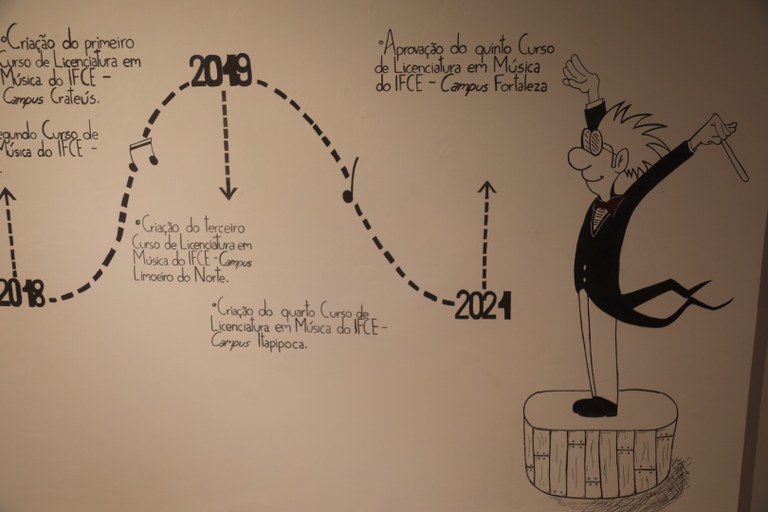 °Criação do primeiro
Curso de Licenciatura em
Música do IFCE -
Campus Crateús.
egundo Curso de
Música do IFCE -
2018
2019
°Criação do terceiro
Curso de Licenciatura em
Música do IFCE-Campus
Limoeiro do Norte.
°Criação do quarto Curso de
Licenciatura em Música do IFCE-
Campus Itapipoca.
°Aprovação do quinto Curso
de Licenciatura em Música
do IFCE - Campus Fortaleza
2021